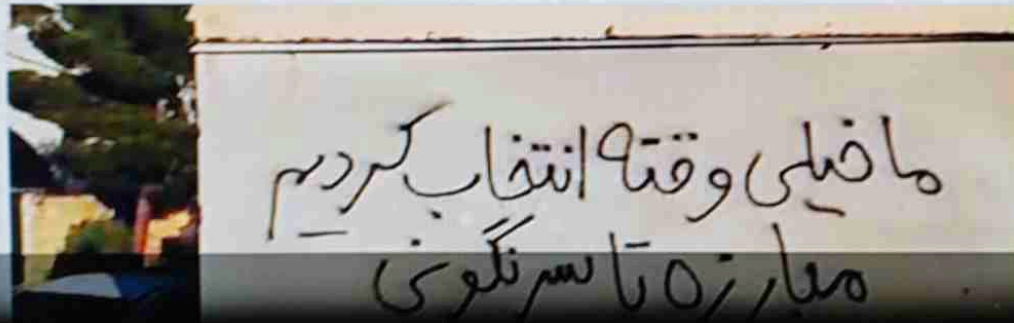 ما خیلی وقته انتخاب کردیم
مبارزه تا سرنگونی